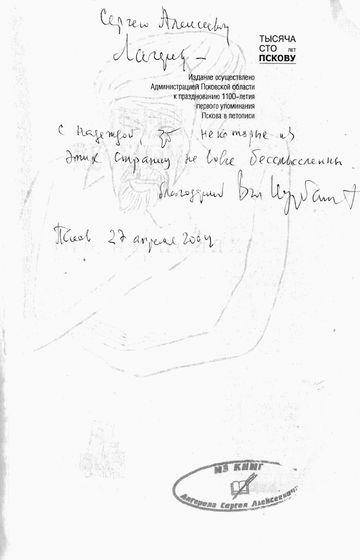 Сергею Алексеевичу
ТЫСЯЧА
СТО лет
ПСКОВУ
Издание осуществлено
Администрацией Псковской области
к празднованию 1100-летия
первого упоминания
Пскова в летописи
с надеждой, что некоторые из
этих страниц не вовсе бессмысленны
Благодарный Вал Курбатов
Псков 27 апреля 2004
ИЗ КНИГ
Сергея Алексеевича